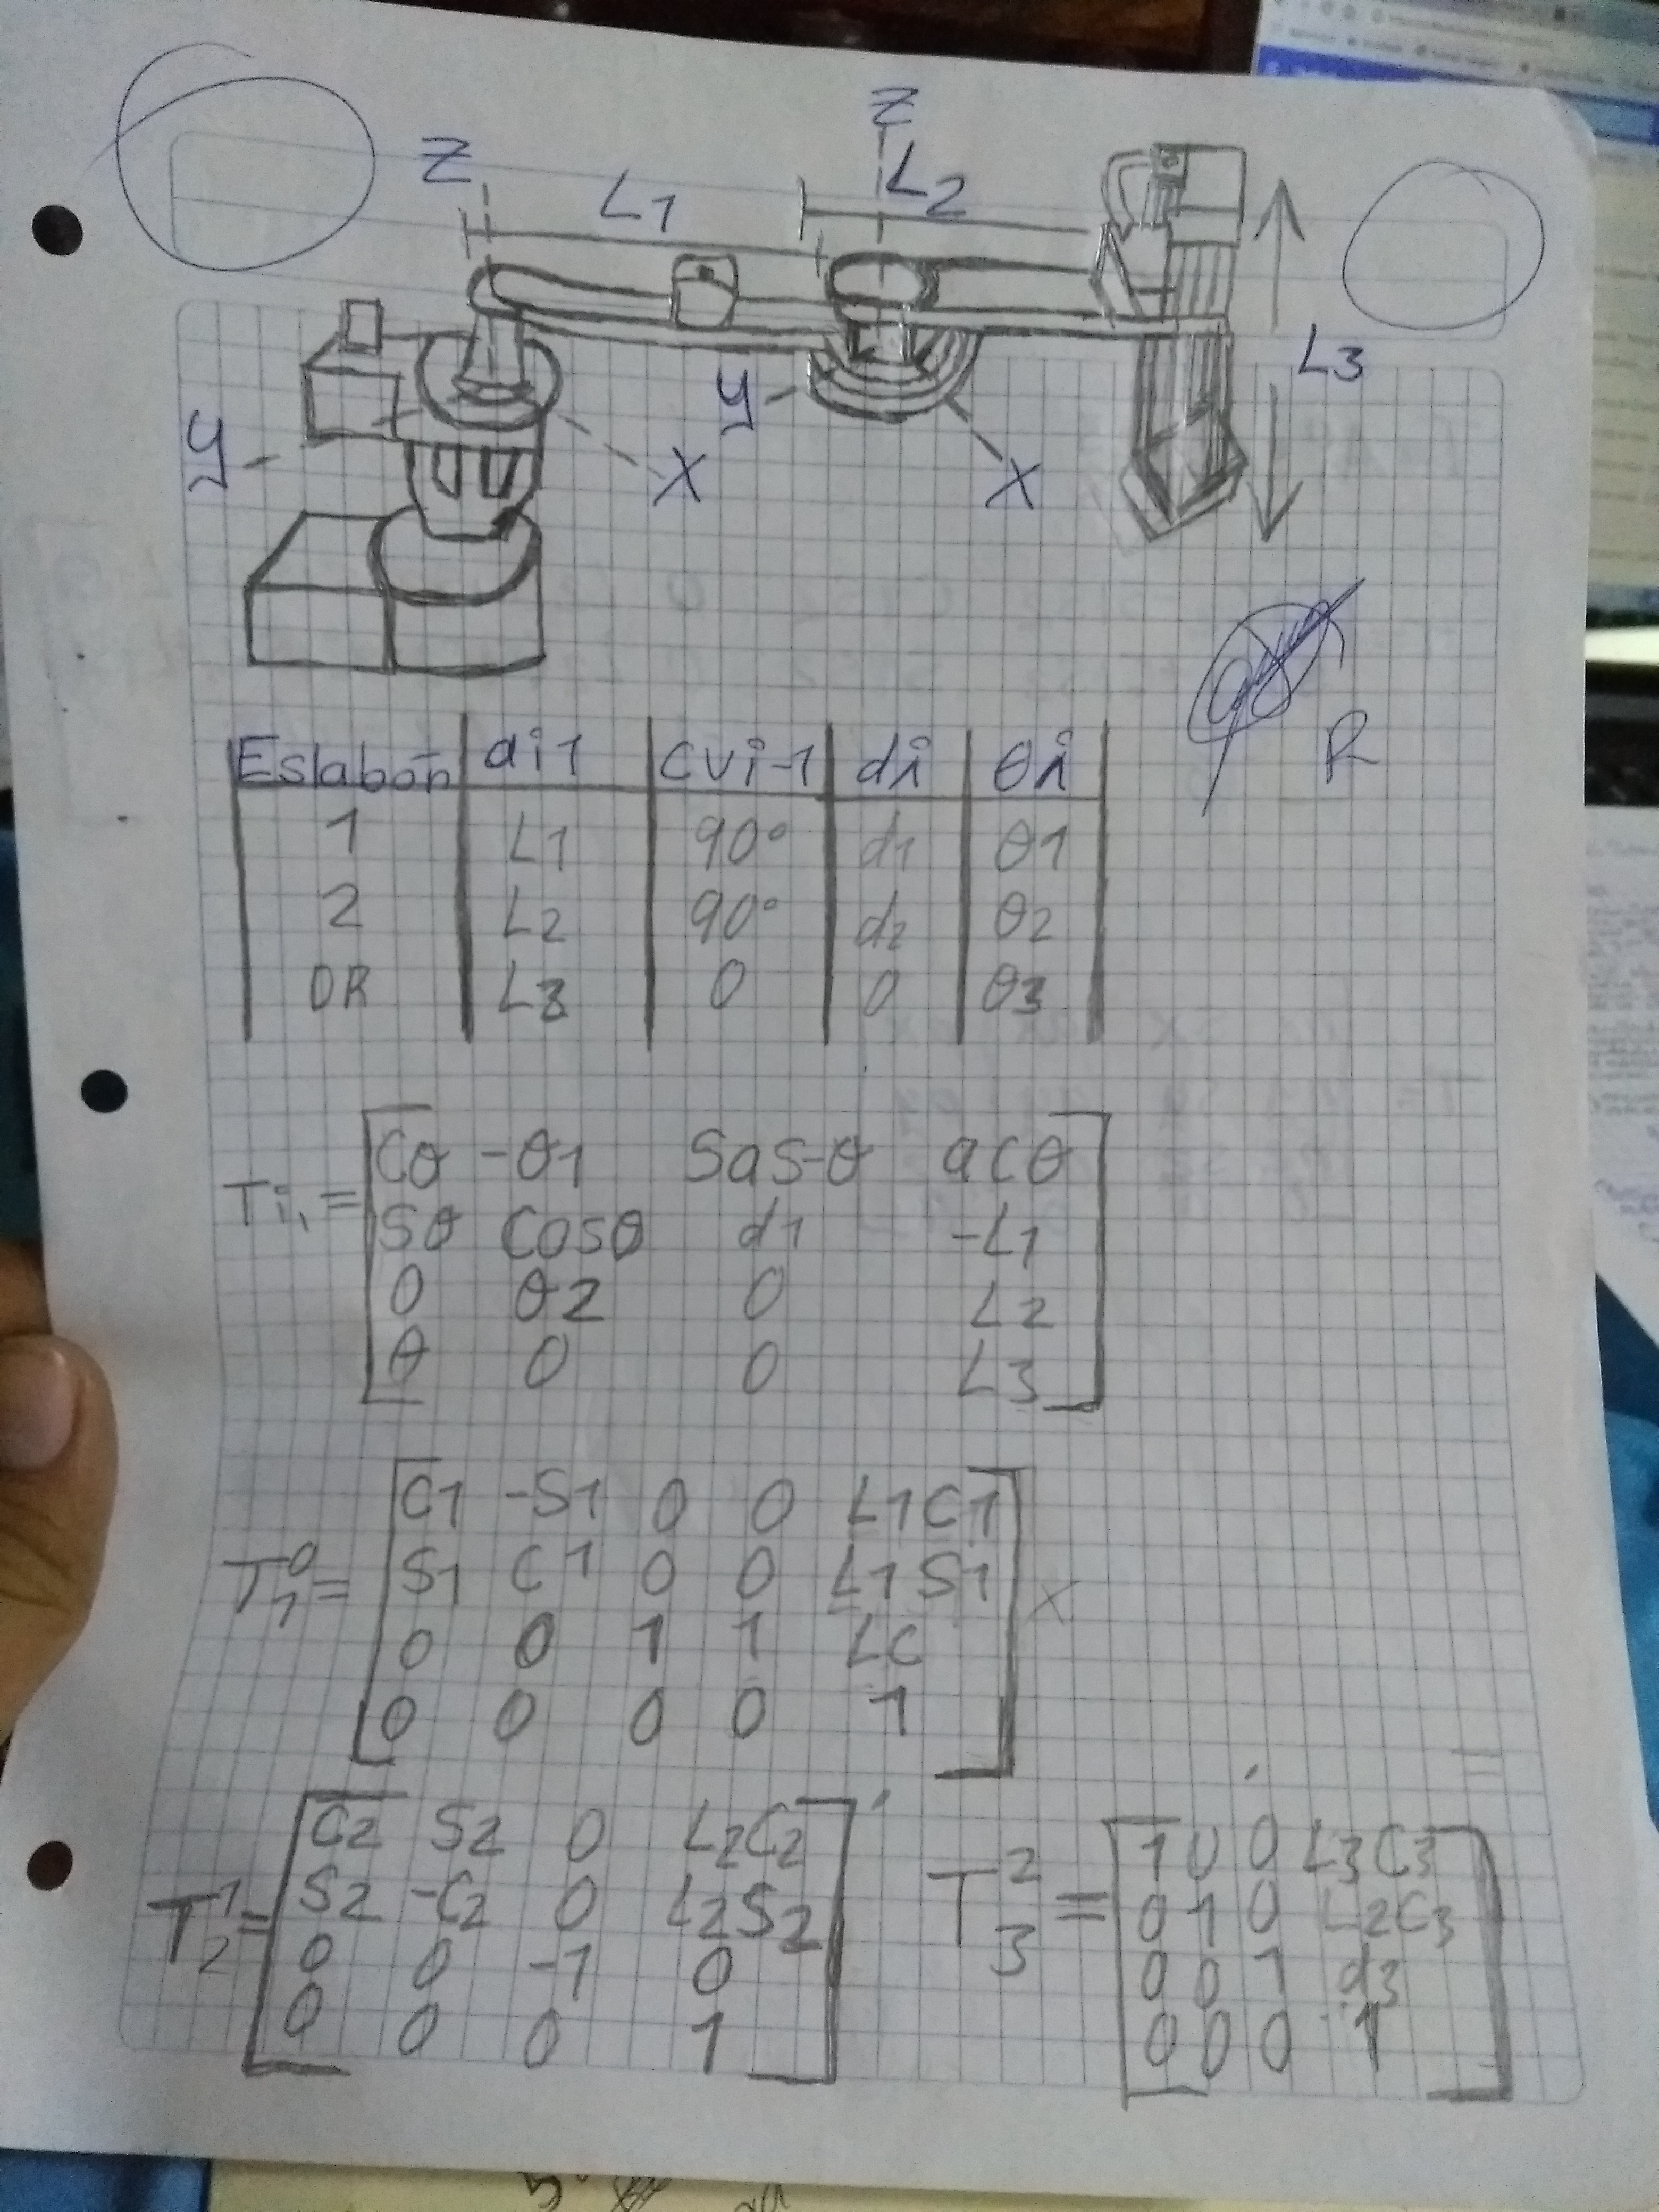 Z
Z
L1
L2
L3
y
X
y
X
R
Eslabón ai1 cvi-1 di θi
1 L1 90° d1 θ1
2 L2 90° d2 θ2
DR L3 0 0 θ3
Ti1 =
Cθ -θ1 SaS-θ aCθ
Sθ Cosθ d1 -L1
0 θ2 0 L2
θ 0 0 L3
T⁰₁ =
C1 -S1 0 0 L1C1
S1 C1 0 0 L1S1
0 0 1 1 LC
0 0 0 0 1
x
T¹₂ =
C2 S2 0 L2C2
S2 -C2 0 L2S2
0 0 -1 0
0 0 0 1
T²₃ =
1 0 0 L3C3
0 1 0 L2C3
0 0 1 d3
0 0 0 1